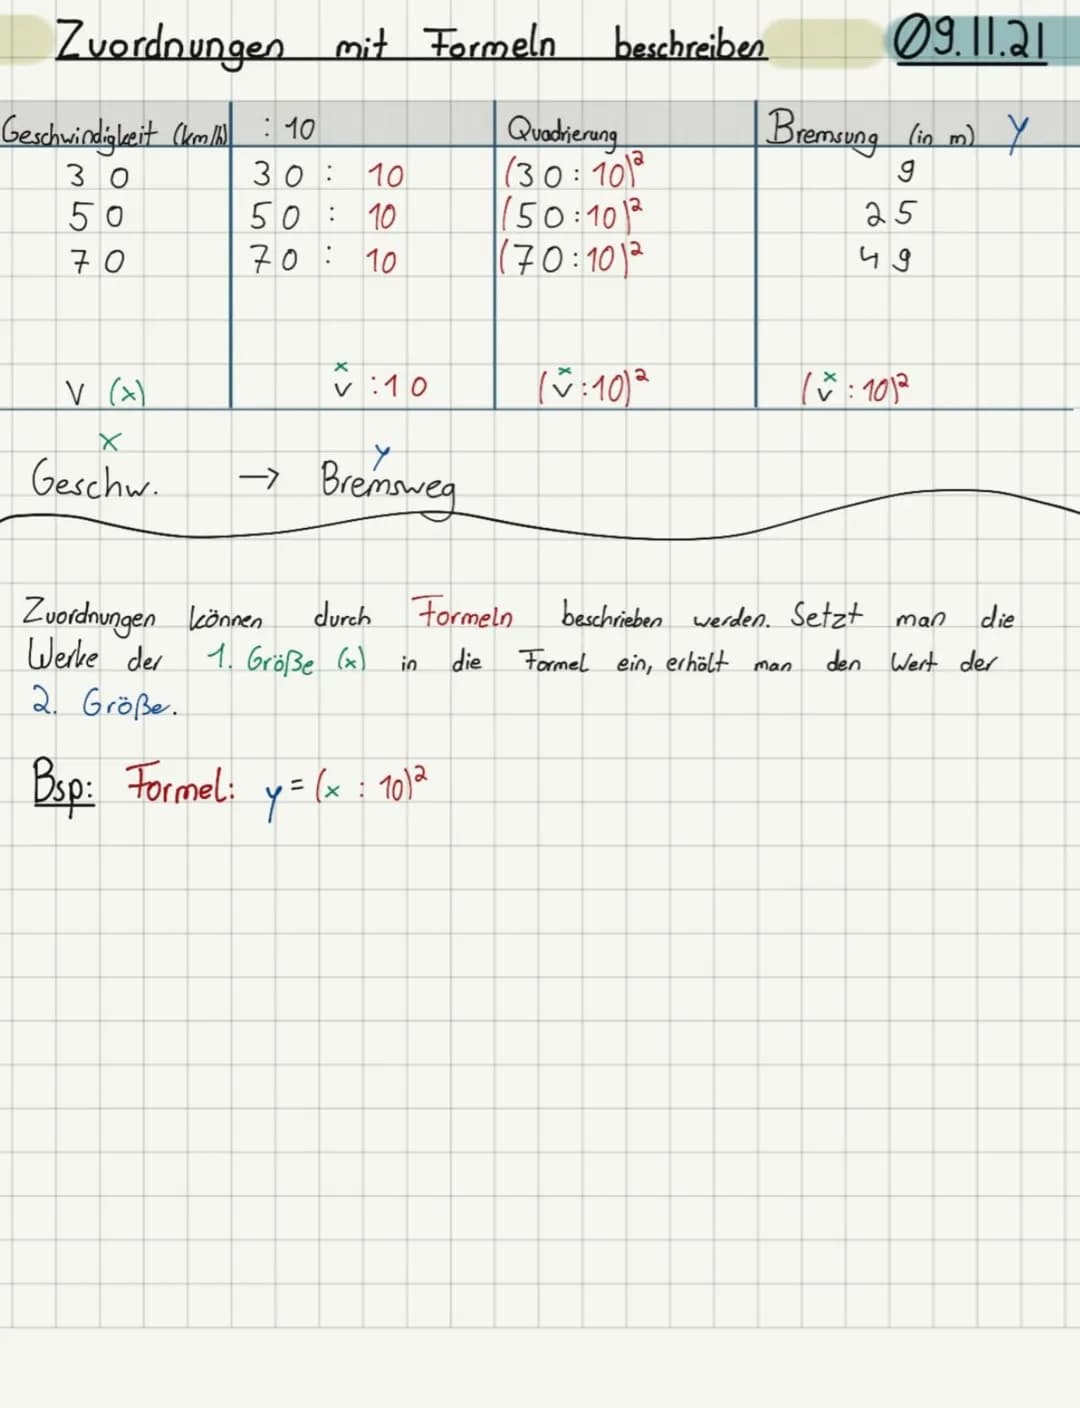 Zuordnungen mit Formeln beschreiben 09.11.21
Geschwindigkeit (km/h) : 10 Quadrierung Bremsung (in m) y
30 30 : 10 (30:10)² 9
50 50 : 10 (50:10)² 25
70 70 : 10 (70:10)² 49
x x x
v (x) v :10 (v:10)² (v:10)²
x y
Geschw. → Bremsweg
Zuordnungen können durch Formeln beschrieben werden. Setzt man die
Werke der 1. Größe (x) in die Formel ein, erhält man den Wert der
2. Größe.
Bsp: Formel: y = (x : 10)²